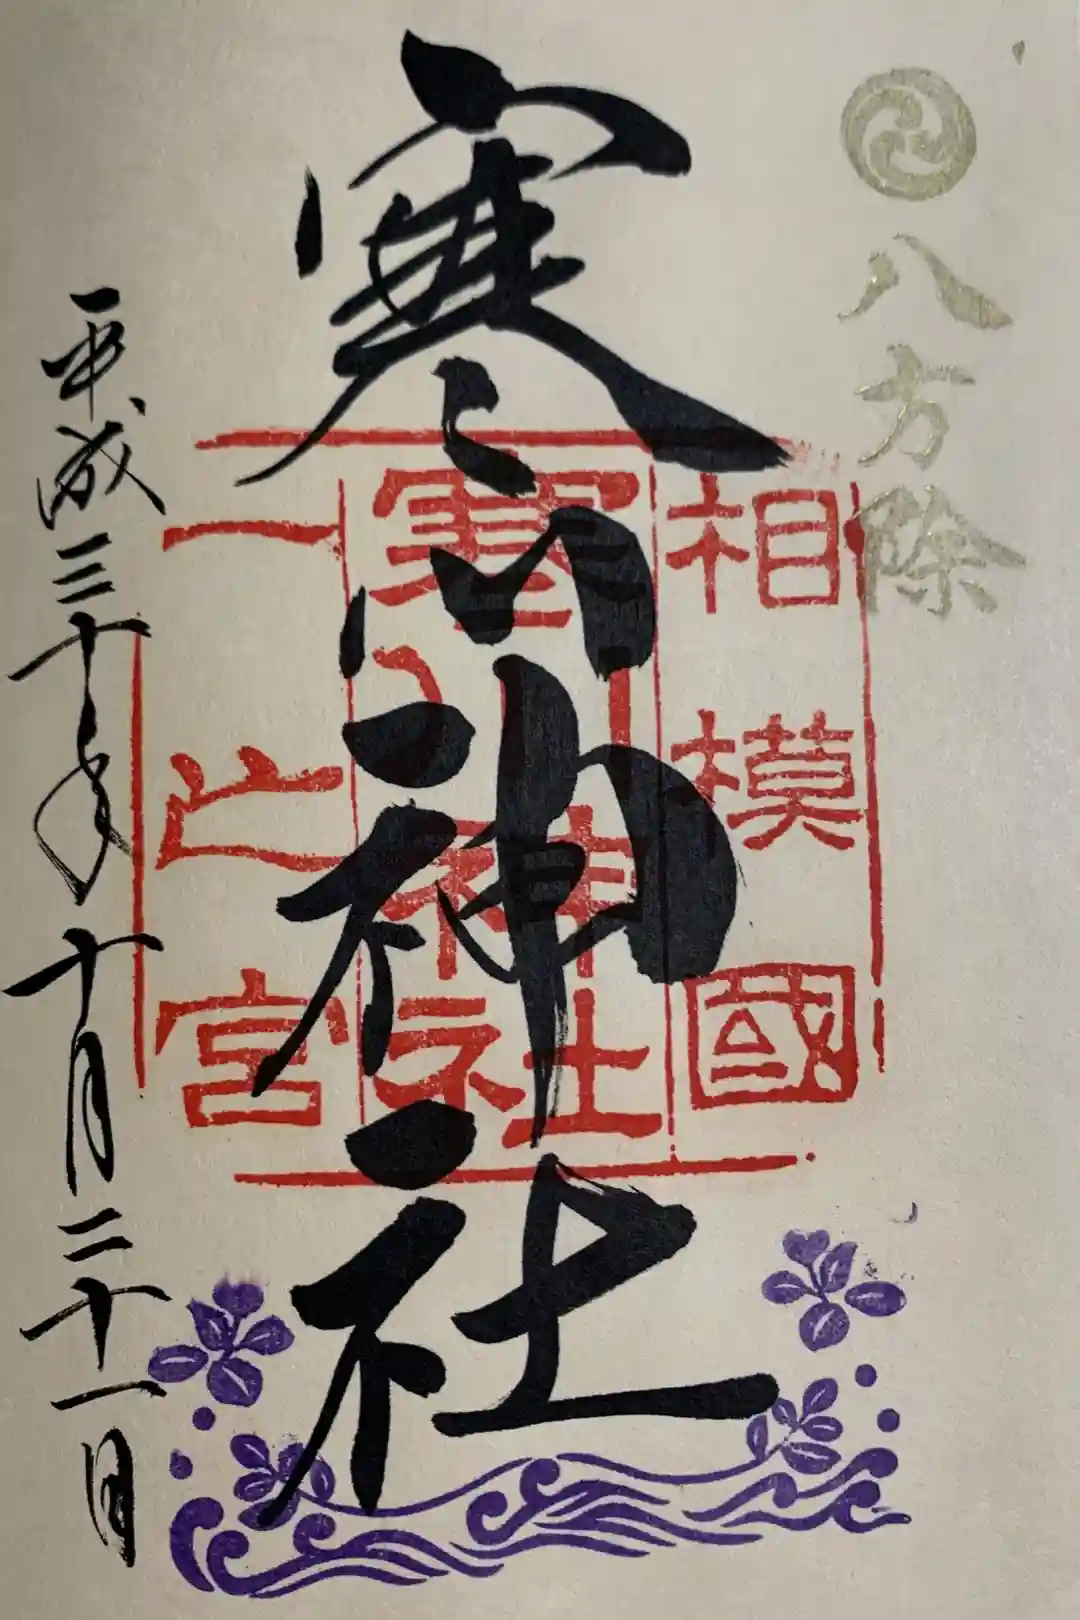 八方除
相模國
寒川神社
一之宮
寒川神社
平成三十年十月二十一日